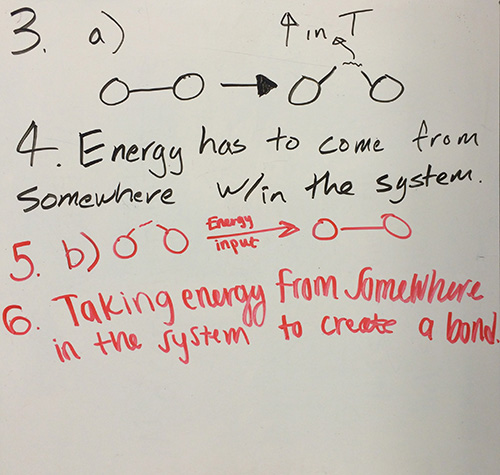 3. a) ↑ in T
4. Energy has to come from
somewhere w/in the system.
5. b) Energy input
6. Taking energy from somewhere
in the system to create a bond.